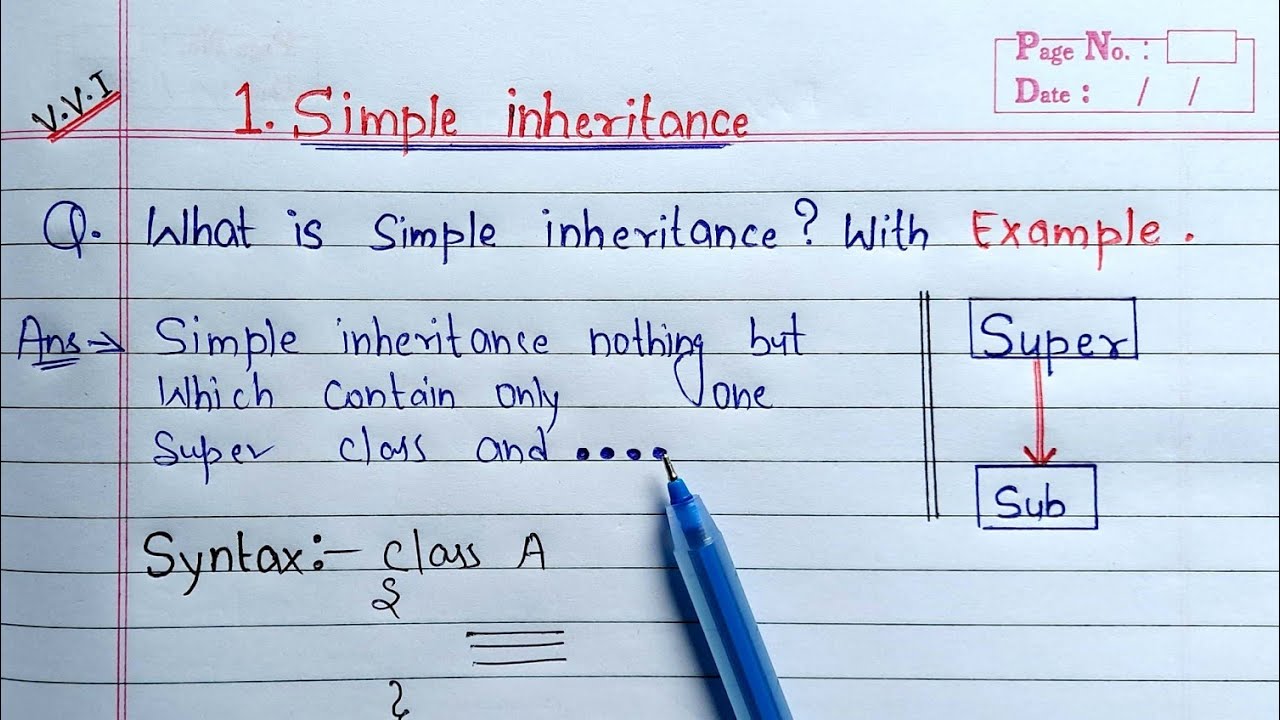 V.V.I
Page No. :
Date : / /
1. Simple inheritance
Q. What is Simple inheritance? With Example.
Ans → Simple inheritance nothing but
Which contain only one
Super class and ....
Super
Sub
Syntax:- class A
{
}